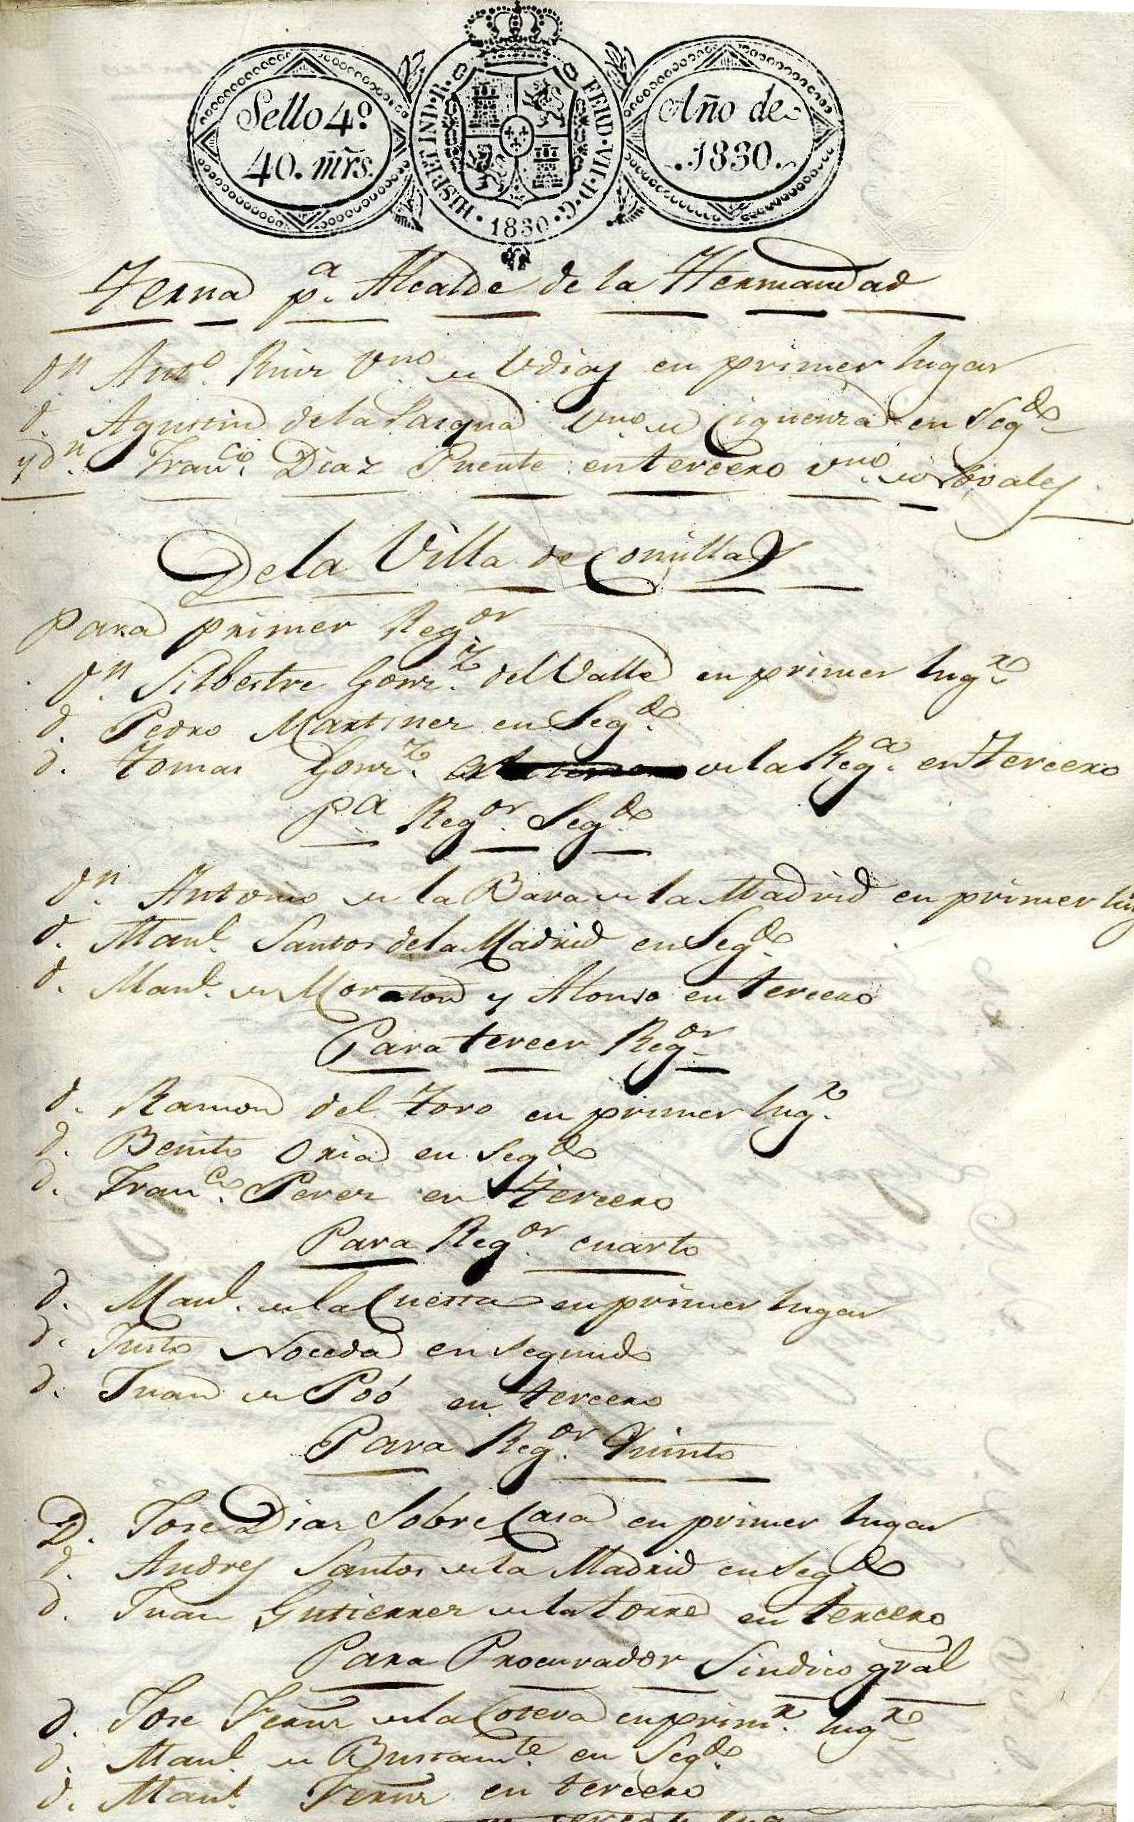 Sello 4º
40. mrs.
HISP. ET IND. R. FERD. VII. D. G. 1830
Año de
1830.
Terna pª Alcalde de la Hermandad
Dn Antº Ruiz Vno de Udias en primer lugar
d. Agustin de la Pasqua Vno de Ciguenza en Segdo
y dn Francº Diaz Puente en tercero vno de Novales
De la Villa de Comillas
Para primer Regor
Dn Silbestre Gonz del Valle en primer lugr
d. Pedro Martinez en Segdo
d. Tomas Gonz de la Rega en Tercero
Pa Regor Segdo
Dn Antonio de la Bara de la Madrid en primer lug
d. Manl Santos de la Madrid en Segdo
d. Manl de Moraton y Alonso en tercero
Para tercer Regor
d. Ramon del Toro en primer lugr
d. Benito Oria en segdo
d. Franco Perez en tercero
Para Regor cuarto
d. Manl de la Cuesta en primer lugar
d. Justo Noceda en segundo
d. Juan de Poó en tercero
Para Regor Quinto
D. Jose Diaz Sobre Casa en primer lugar
d. Andres Santos de la Madrid en Segdo
d. Juan Gutierrez de la torre en tercero
Para Procurador Sindico gral
d. Jose Fernz de la Cotera en primr lugr
d. Manl de Bustamte en Segdo
d. Manl Fernz en tercero